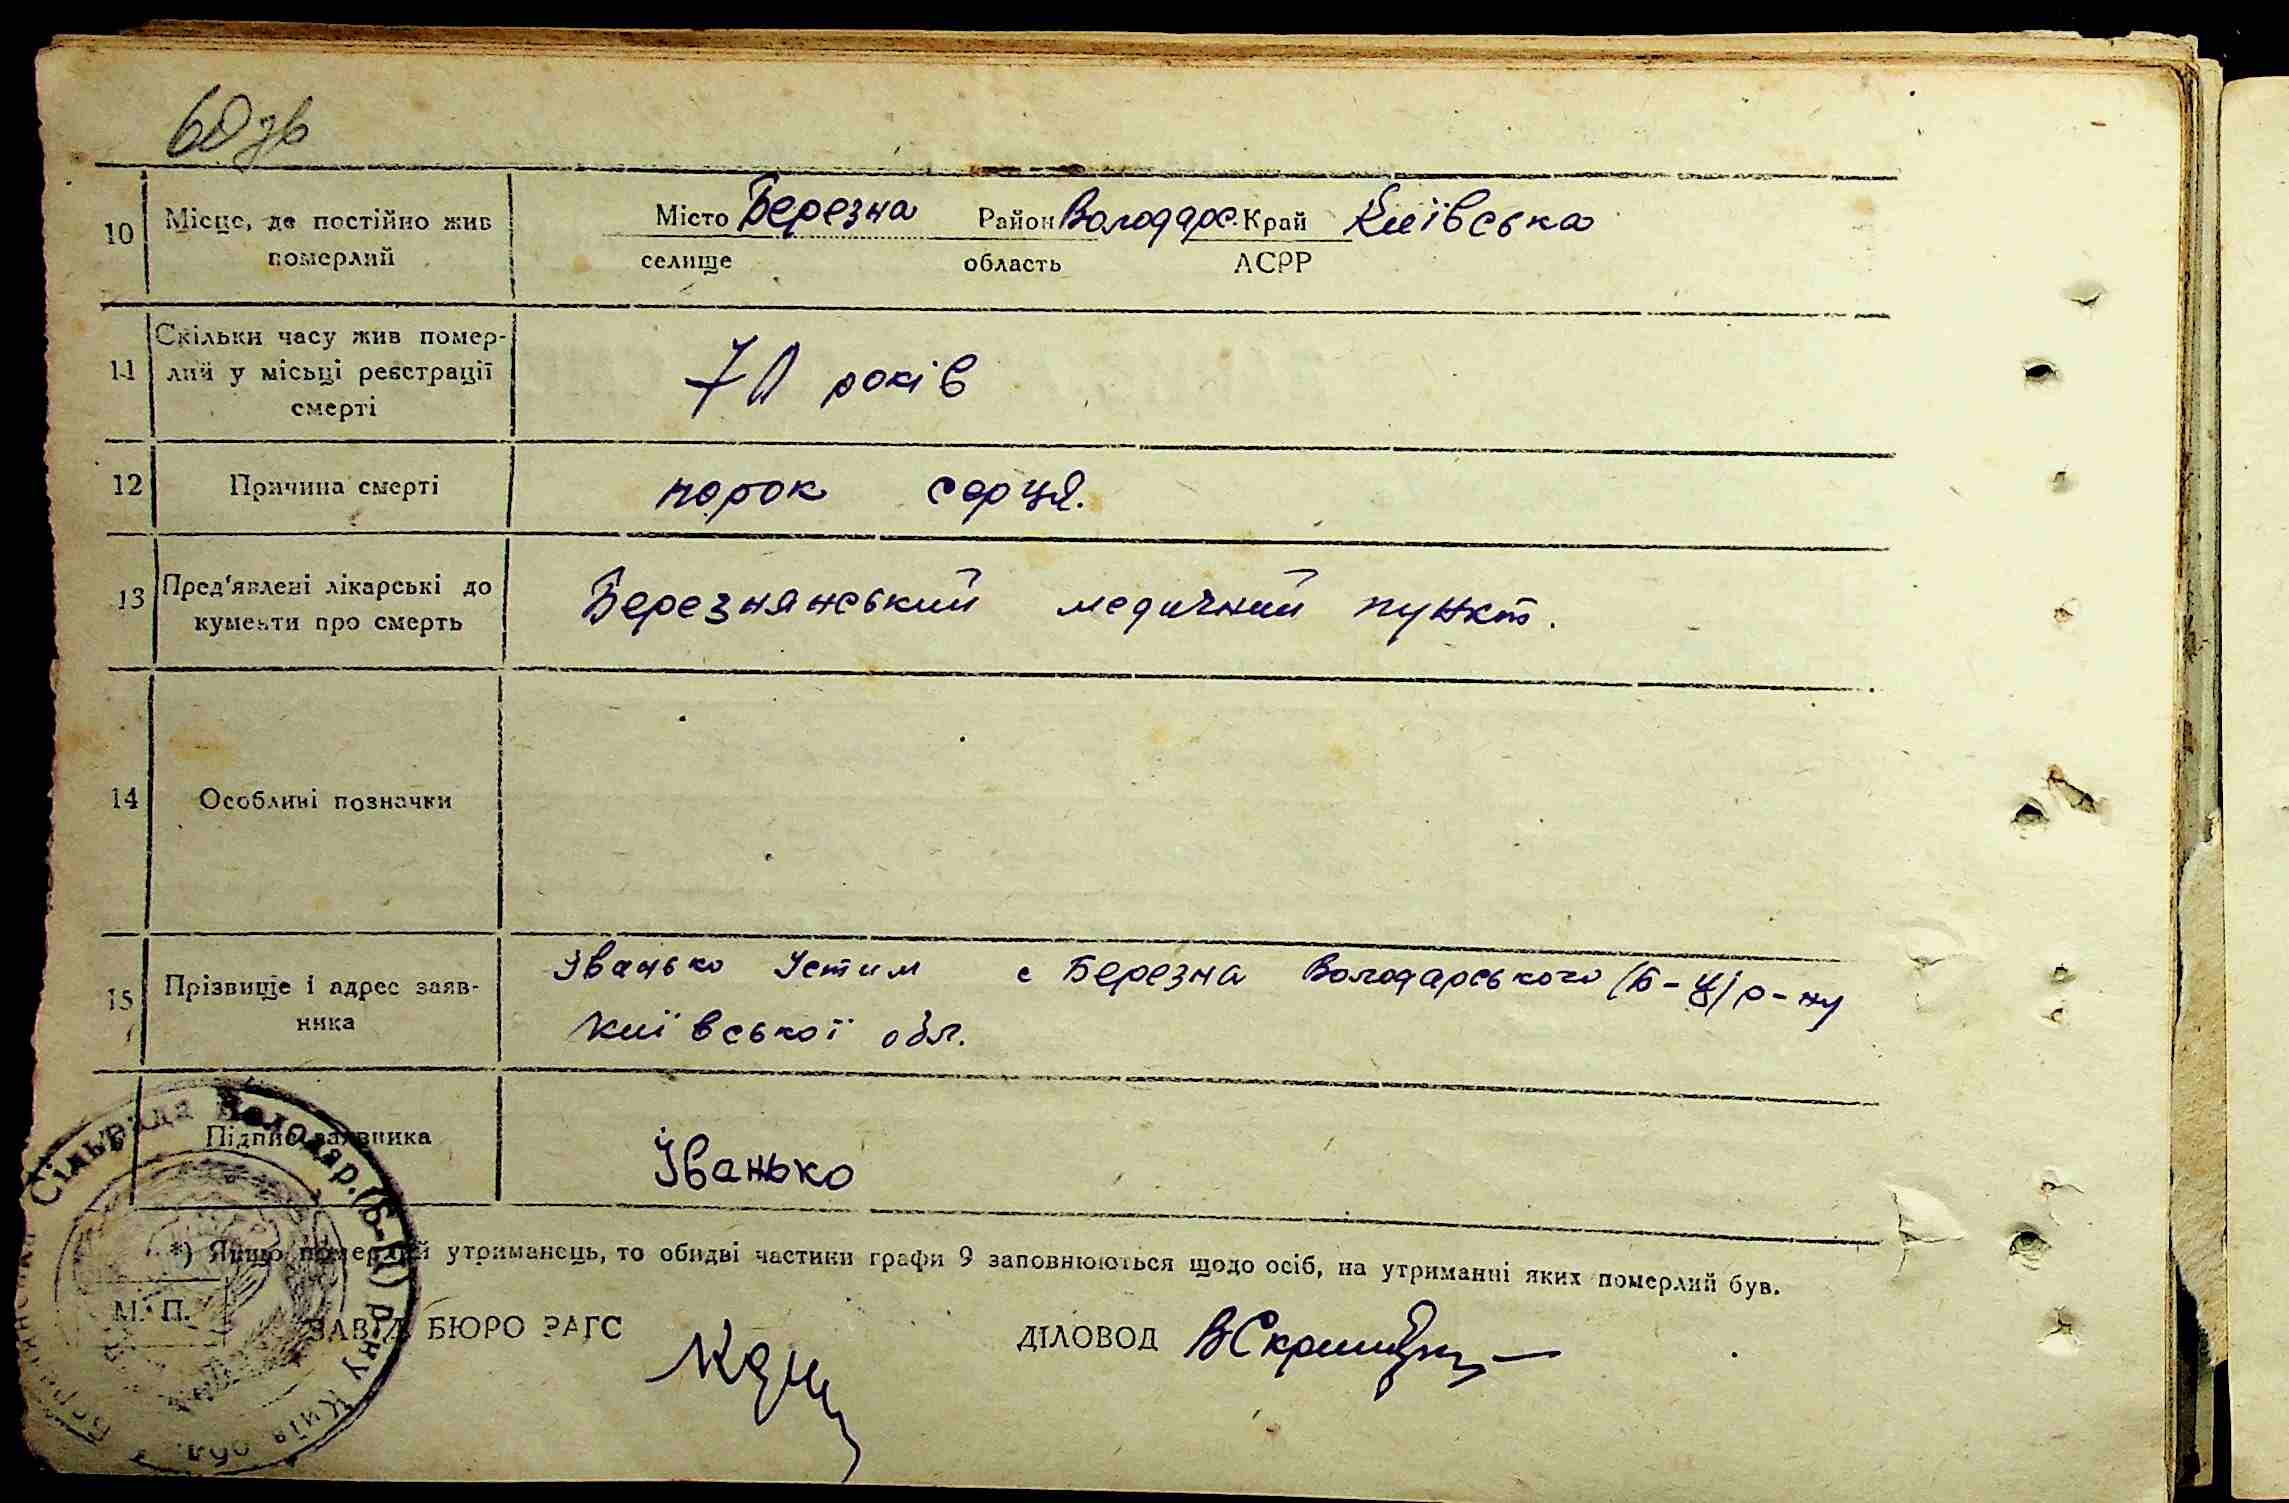 60 зв
10 Місце, де постійно жив Місто Березна Район Володарс. Край Київська
померлий селище область АСРР
Скільки часу жив помер-
11 лий у місьці реєстрації 70 років
смерті
12 Причина смерті порок серця.
13 Пред'явлені лікарські до Березнянський медичний пункт.
кументи про смерть
14 Особливі позначки
15 Прізвище і адрес заяв- Іванько Устим с Березна Володарського (Б-Ц) р-ну
ника Київської обл.
Підпис заявника Іванько
Сільрада Володар. (Б-Ц) р-ну Київ. обл.
*) Якщо померлий утриманець, то обидві частини графи 9 заповнюються щодо осіб, на утриманні яких померлий був.
М. П.
ЗАВІД. БЮРО РАГС ДІЛОВОД